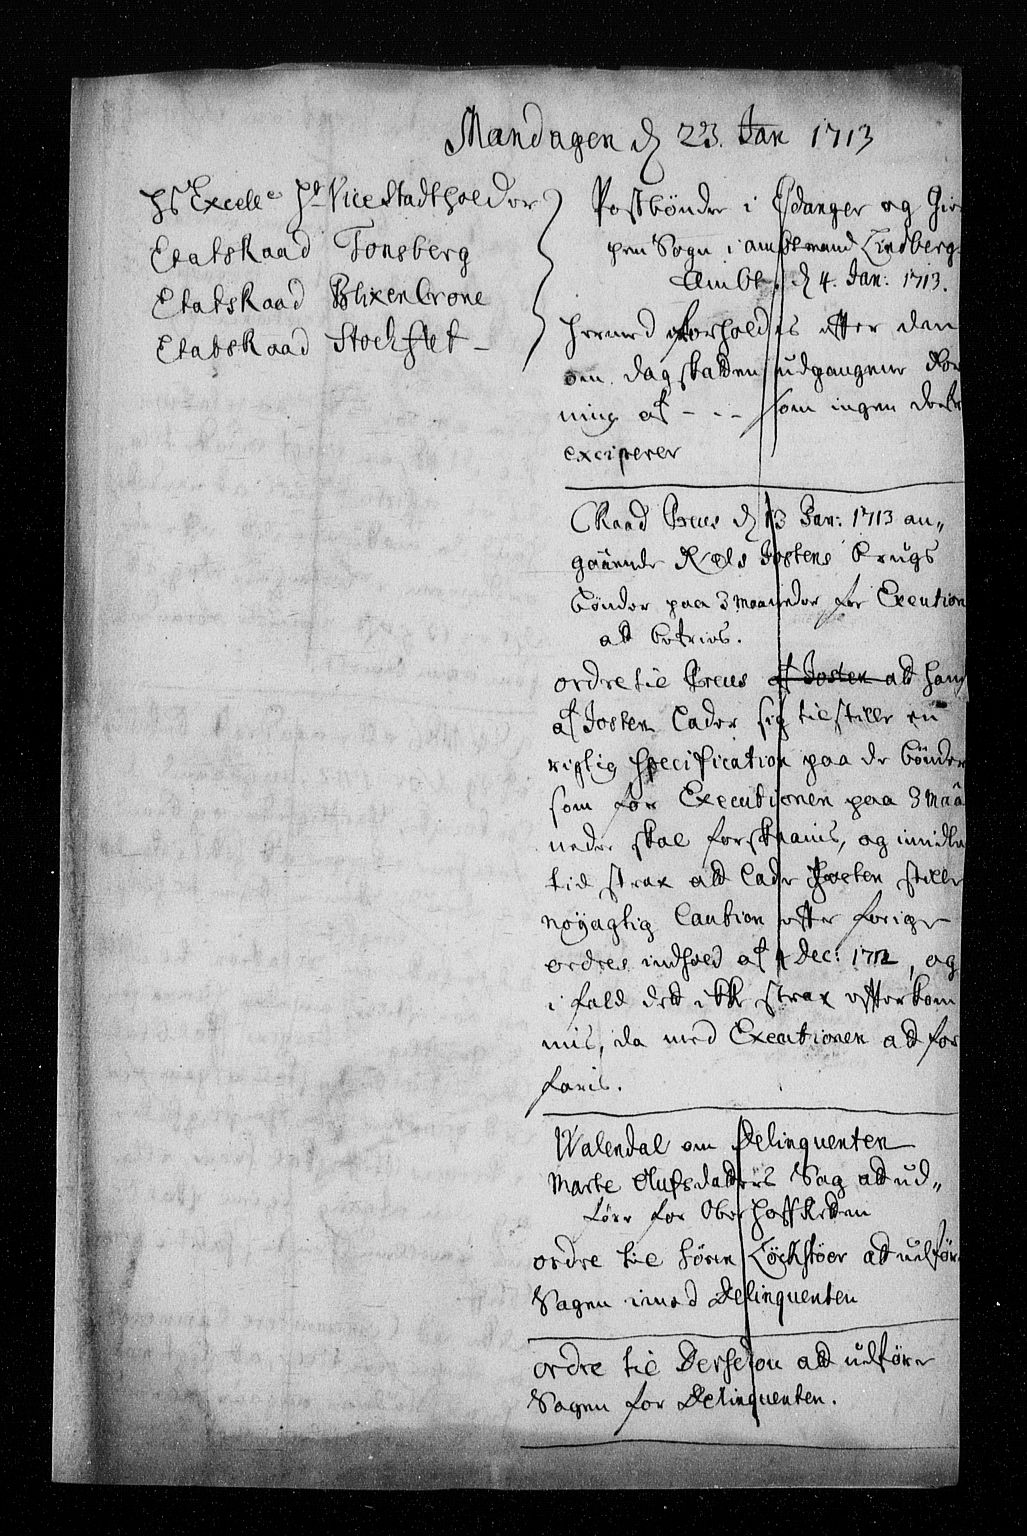 Mandagen d. 23. Jan 1713
Hs Excell Hr Vice Stadtholder
Etatsraad Tonsberg
Etatsraad Blixencrone
Etatsraad Stochflet
Postbönder i Eidanger og Gier
pen Sogn i ambtmand Lindberg
Ambt. d. 4. Jan: 1713.
Hermed forholdis efter den
om dagskatten udgangene For
ning af - - - som ingen
exciperer
Raad Preus d. 13 Jan: 1713 an„
gaaende Niels Jostens brugs
bönder paa 3 maaneder for Execution
att betries.
ordre til Preus af Josten att hand
af Josten lader sig tilstille en
rigtig specification paa de bönder
som for Executionen paa 3 maa
neder skal forskaanis, og imidler
tid strax att lade Josten stille
nöyagtig Caution efter forige
ordres indhold af 4 Dec: 1712, og
i fald dett ikke strax efterkom
mis, da med Executionen att for
faris.
Walendal om Delinquenten
Marte Olufsdatters Sag att ud„
före for Ober Hoff Retten
ordre til Sören Löchstöer att udföre
Sagen imod Delinquenten
ordre til att udföre
Sagen for Delinquenten.